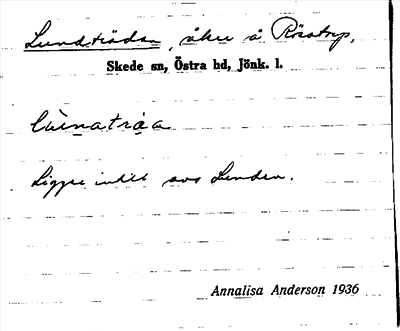 Lundträdan, åker å Rösatorp,
Skede sn, Östra hd, Jönk. l.
Ligger intill avs Lunden.
Annalisa Anderson 1936